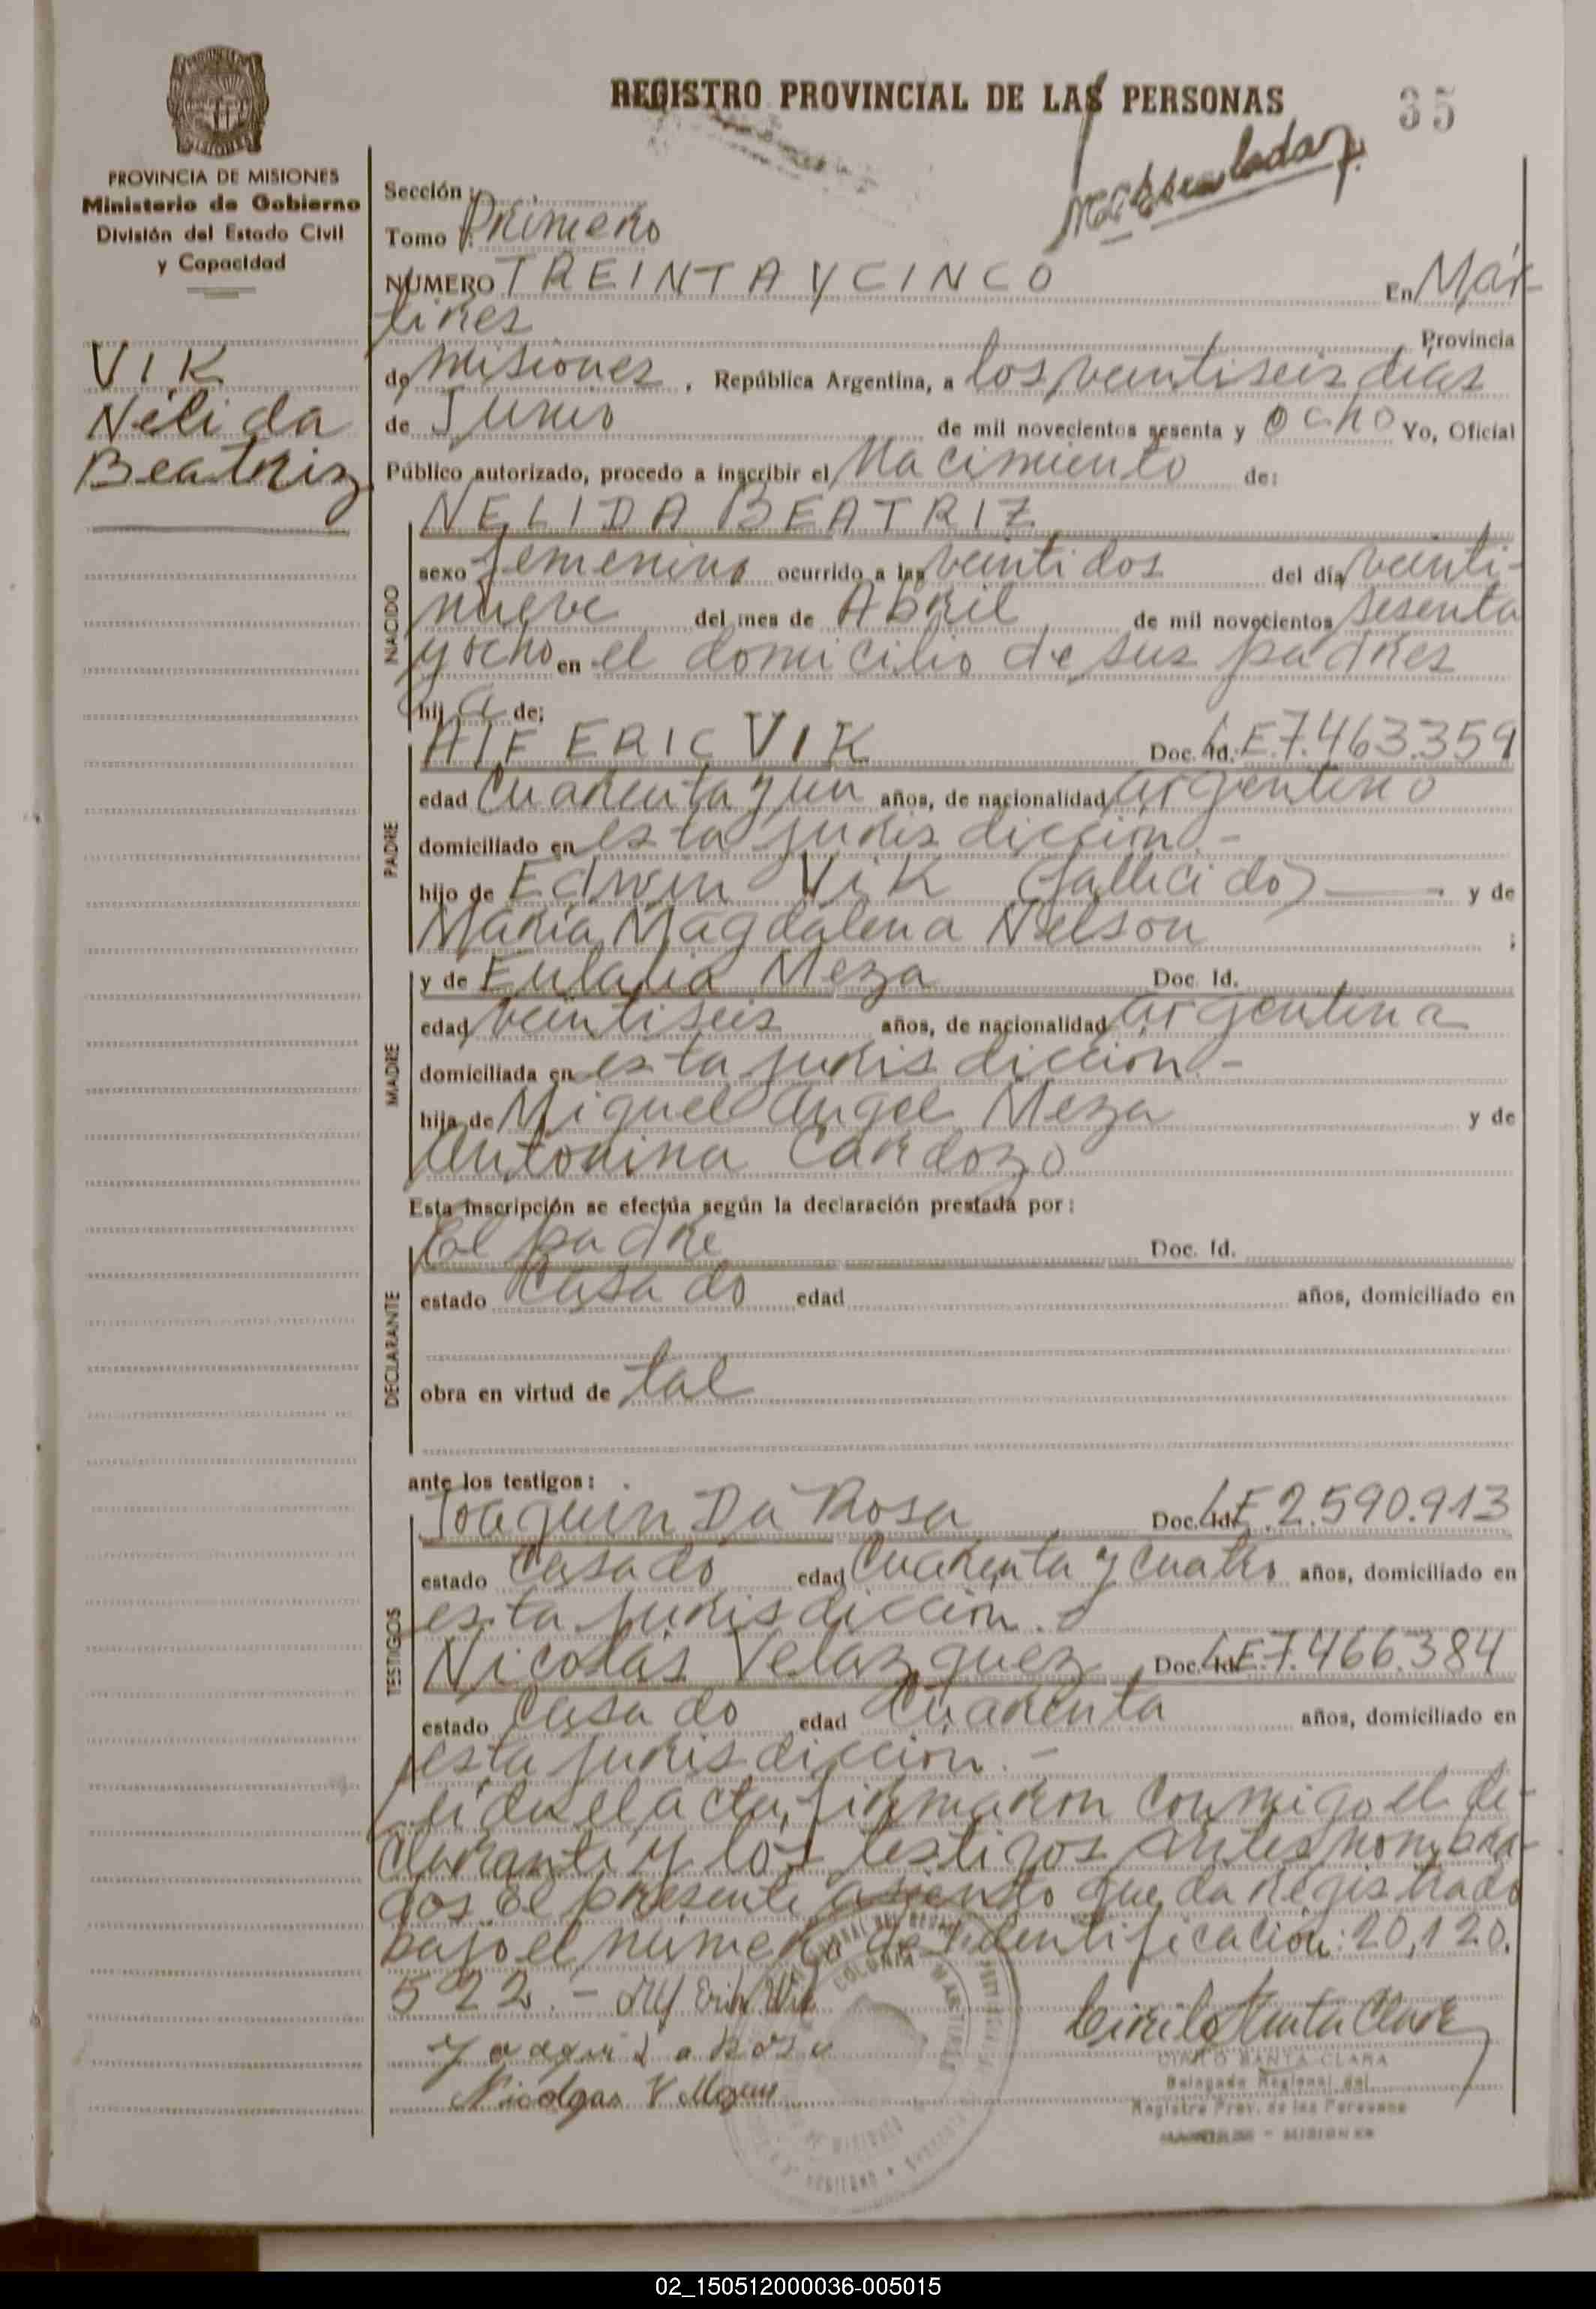 REGISTRO PROVINCIAL DE LAS PERSONAS
35
PROVINCIA DE MISIONES
Ministerio de Gobierno
División del Estado Civil
y Capacidad
VIK
Nélida
Beatriz
Sección
Tomo Primero
NUMERO TREINTA Y CINCO En Már-
tires
Provincia
de Misiones, República Argentina, a los veintiseis dias
de Junio de mil novecientos sesenta y ocho Yo, Oficial
Público autorizado, procedo a inscribir el Nacimiento de:
NELIDA BEATRIZ
NACIDO
sexo femenino ocurrido a las veintidos del día veinti-
nueve del mes de Abril de mil novecientos sesenta
y ocho en el domicilio de sus padres
hija de:
PADRE
ALF ERIC VIK Doc. Id. LE.7.463.359
edad Cuarenta y un años, de nacionalidad argentino
domiciliado en esta jurisdicción.-
hijo de Edwin Vik (fallecido) y de
María Magdalena Nelson ;
MADRE
y de Eulalia Meza Doc. Id.
edad veintiseis años, de nacionalidad argentina
domiciliada en esta jurisdicción.-
hija de Miguel Angel Meza y de
Antonina Cardozo
Esta inscripción se efectúa según la declaración prestada por:
DECLARANTE
El padre Doc. Id.
estado Casado edad años, domiciliado en
obra en virtud de tal
ante los testigos:
TESTIGOS
Joaquin Da Rosa Doc. Id. LE.2.590.913
estado Casado edad Cuarenta y cuatro años, domiciliado en
esta jurisdicción.-
Nicolás Velazquez Doc. Id. LE.7.466.384
estado Casado edad Cuarenta años, domiciliado en
esta jurisdicción.-
Leída el acta, firmaron conmigo el de-
clarante y los testigos antes nombra-
dos El presente asiento queda registrado
bajo el número de identificación: 20,120.
522.-
CIRILO SANTA CLARA
Delegado Regional del
Registro Prov. de las Personas
MARTIRES - MISIONES
COLONIA MARTIRES
02_150512000036-005015